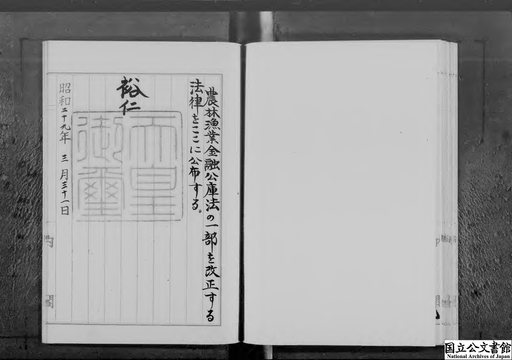 農林漁業金融公庫法の一部を改正する
法律をここに公布する。
裕仁
天皇
御璽
昭和二十九年三月三十一日
国立公文書館
National Archives of Japan